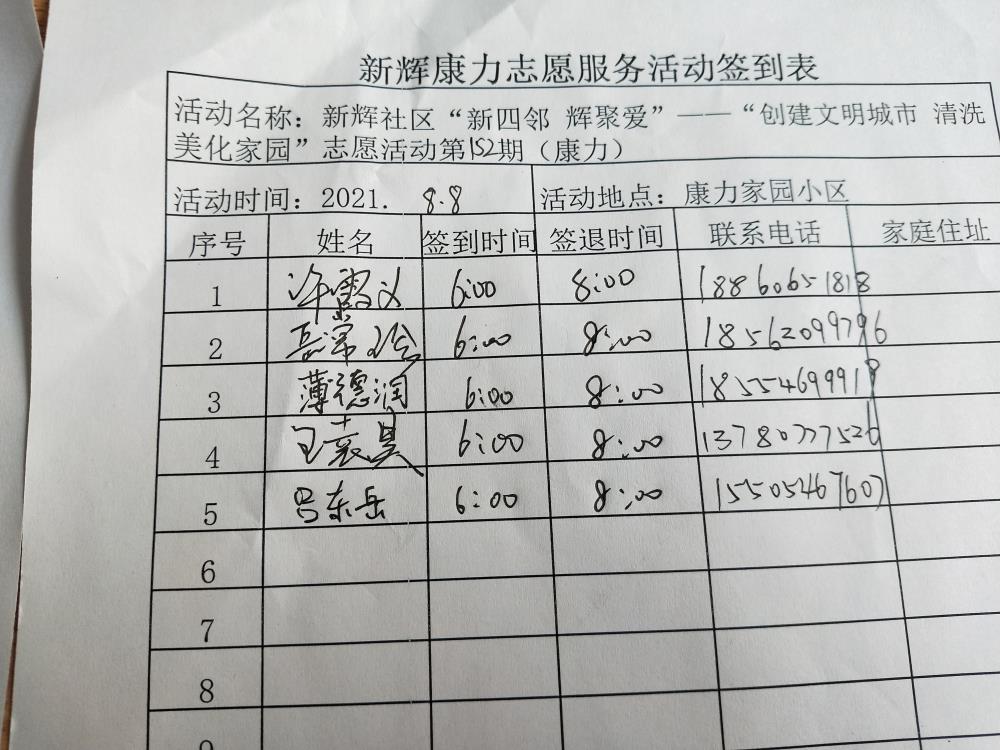 新辉康力志愿服务活动签到表
活动名称：新辉社区“新四邻 辉聚爱”——“创建文明城市 清洗
美化家园”志愿活动第152期（康力）
活动时间：2021. 8.8 活动地点：康力家园小区
序号 姓名 签到时间 签退时间 联系电话 家庭住址
1 6:00 8:00 18860651818
2 6:00 8:00 18562099796
3 薄德润 6:00 8:00 18554699919
4 6:00 8:00 13780777526
5 吕东岳 6:00 8:00 15505467607
6
7
8